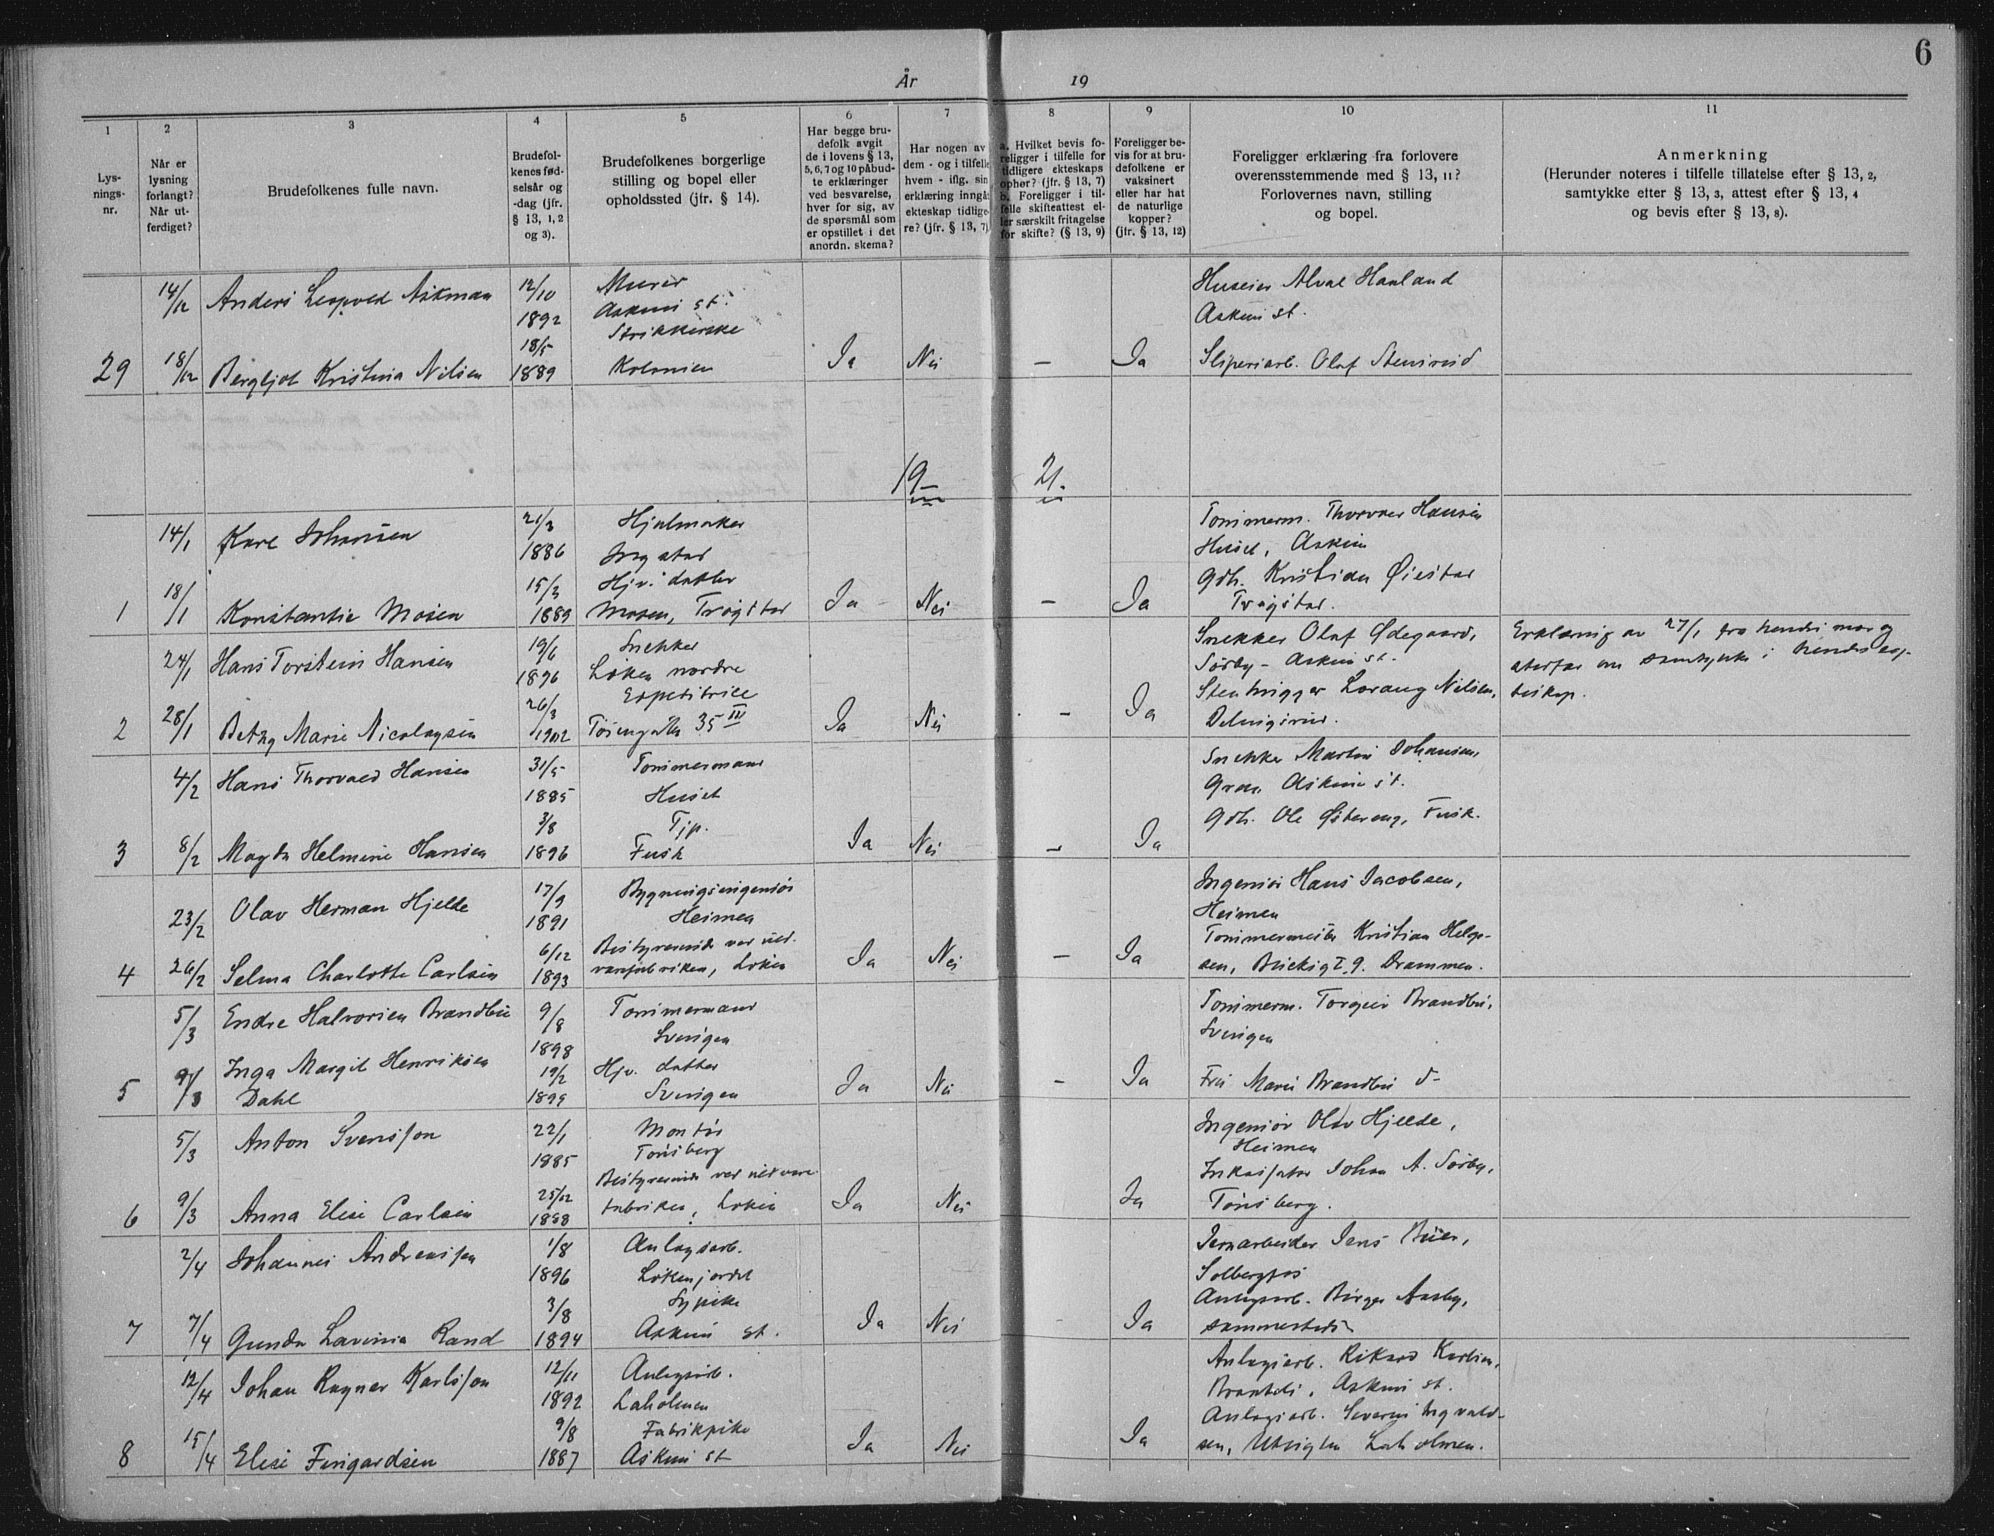 6
År 19
1 2 3 4 5 6 7 8 9 10 11
Lys-
nings-
nr.
Når er
lysning
forlangt?
Når ut-
ferdiget?
Brudefolkenes fulle navn.
Brudefol-
kenes fød-
selsår og
-dag (jfr.
§ 13, 1, 2
og 3).
Brudefolkenes borgerlige
stilling og bopel eller
opholdssted (jfr. § 14).
Har begge bru-
defolk avgit
de i lovens § 13,
5, 6, 7 og 10 påbud-
te erklæringer
ved besvarelse,
hver for sig, av
de spørsmål som
er opstillet i det
anordn. skema?
Har nogen av
dem - og i tilfelle
hvem - iflg. sin
erklæring inngå
ekteskap tidlige-
re? (jfr. § 13, 7)
a. Hvilket bevis fo-
religger i tilfelle for
tidligere ekteskaps
ophør? (jfr. § 13, 7)
b. Foreligger i til-
felle skifteattest el-
ler særskilt fritagelse
for skifte? (§ 13, 9)
Foreligger be-
vis for at bru-
defolkene er
vaksinert
eller har hat
de naturlige
kopper?
(jfr. § 13, 12)
Foreligger erklæring fra forlovere
overensstemmende med § 13, 11?
Forlovernes navn, stilling
og bopel.
Anmerkning
(Herunder noteres i tilfelle tillatelse efter § 13, 2,
samtykke efter § 13, 3, attest efter § 13, 4
og bevis efter § 13, 8).
14/12 Anders Leopold Askman 12/10 Murer Huseier Alval Haaland
1892 Askim st. Askim st.
18/5 Strikkerske
29 18/12 Bergljot Kristina Nilsen 1889 Kolonien Ja Nei – Ja Sliperiarb. Olaf Stensrud
19 21.
14/1 Karl Johansen 21/3 Hjulmaker Tømmerm. Thorvald Hansen
1886 Huset, Askim
15/3 Hjv. datter Gdb. Kristian Øiestad
1 18/1 Konstantie Mosen 1889 Mosen, Trøgstad Ja Nei – Ja Trøgstad.
24/1 Hans Torstein Hansen 19/6 Snekker Snekker Olaf Ødegaard, Erklæring av 27/1 fra hendes mor og
1896 Løken nordre Sørby – Askim st. stefar om samtykke i hendes eg-
26/3 Expeditrice Stenhugger Lorang Nilsen, teskap.
2 28/1 Betzy Marie Nicolaysen 1902 35 III Ja Nei – Ja
4/2 Hans Thorvald Hansen 31/5 Tømmermand Snekker Martin Johansen,
1885 Huset Gran Askim st.
3/8 Tjp. Gdb. Ole Østereng, Fusk.
3 8/2 Magda Helmine Hansen 1896 Fusk Ja Nei – Ja
23/2 Olav Herman Hjelde 17/9 Bygningsingeniør Ingeniør Hans Jacobsen,
1891 Heimen Heimen
6/12 Bestyrerinde ved uld- Tømmermester Kristian Helge-
4 26/2 Selma Charlotte Carlsen 1893 varefabriken, Løken Ja Nei – Ja sen, Drammen.
5/3 Endre Halvorsen Brandbu 9/8 Tømmermand Tømmerm. Torgeir Brandbu,
1898 Svingen Svingen
Inga Margit Henriksen 19/2 Hjv. datter
5 9/3 Dahl 1899 Svingen Ja Nei – Ja Fru Marie Brandbu
5/3 Anton Svensson 22/1 Montør Ingeniør Olav Hjelde,
1885 Tønsberg Heimen
25/12 Bestyrerinde ved uldvare- Inkassator Johan A. Sørby,
6 9/3 Anna Elise Carlsen 1888 fabriken, Løken Ja Nei Ja Tønsberg.
2/4 Johannes Andreassen 1/8 Anlegsarb. Jernarbeider Jens Buer,
1896 Løkenjordet Solbergfos
3/8 Sypike Anlegsarb. Birger Aasby,
7 7/4 Gunda Lavinia Rand 1894 Askim st. Ja Nei - Ja sammesteds
12/4 Johan Ragnar Karlsson 12/11 Anlegsarb. Anlegsarb. Rikard Karlsen,
1892 Laholmen Askim st.
9/8 Fabrikpike Anlegsarb. Severin Ingvald-
8 15/4 Elise Fingardsen 1887 Askim st Ja Nei Ja sen, Utsigten Laholmen.